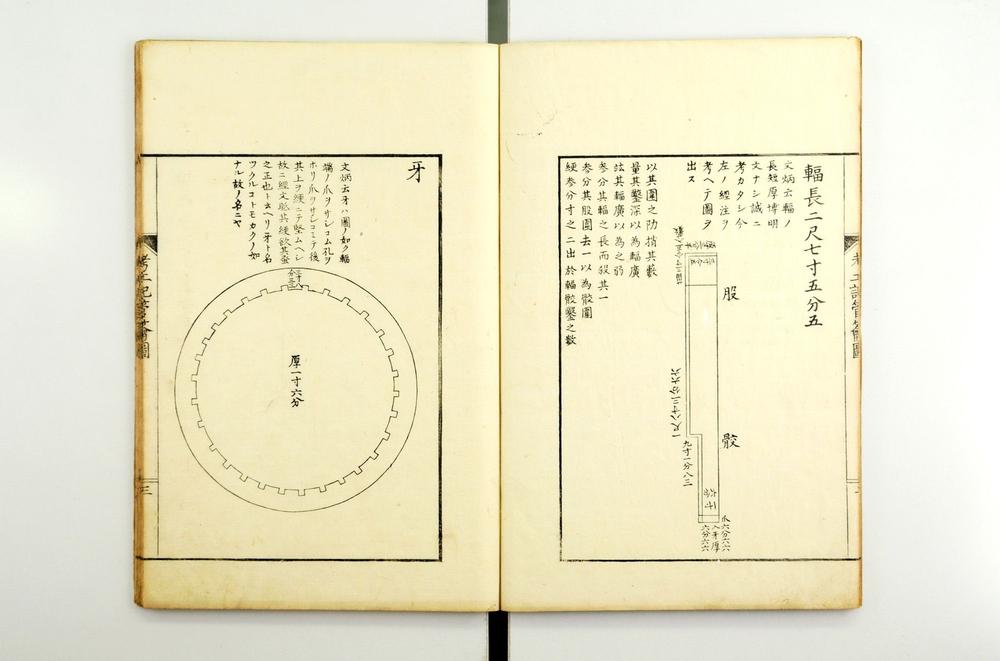 輻長二尺七寸五分五
文炳云輻ノ
長短厚博明
文ナシ誠ニ
考カタシ今
左ノ經注ヲ
考ヘテ圖ヲ
出ス
股
骹
一尺八寸三分六六
九寸一分八三
爪六分六六
入牙厚
六分六六
以其圍之阞捎其藪
量其鑿深以為輻廣
竑其輻廣以為之弱
參分其輻之長而殺其一
參分其股圍去一以為骹圍
綆參分寸之二出於輻骹鑿之數
牙
文炳云牙ハ圖ノ如ク輻
端ノ爪ヲサシコム孔ヲ
ホリ爪ヲサシコミテ後
其上ヲ綆ニテ堅ムヘシ
故ニ經文眡其綆欲其蚤
之正也ト云ヘリ牙ト名
ツクルコトモカクノ如
ナル故ノ名ニヤ
厚一寸六分
三